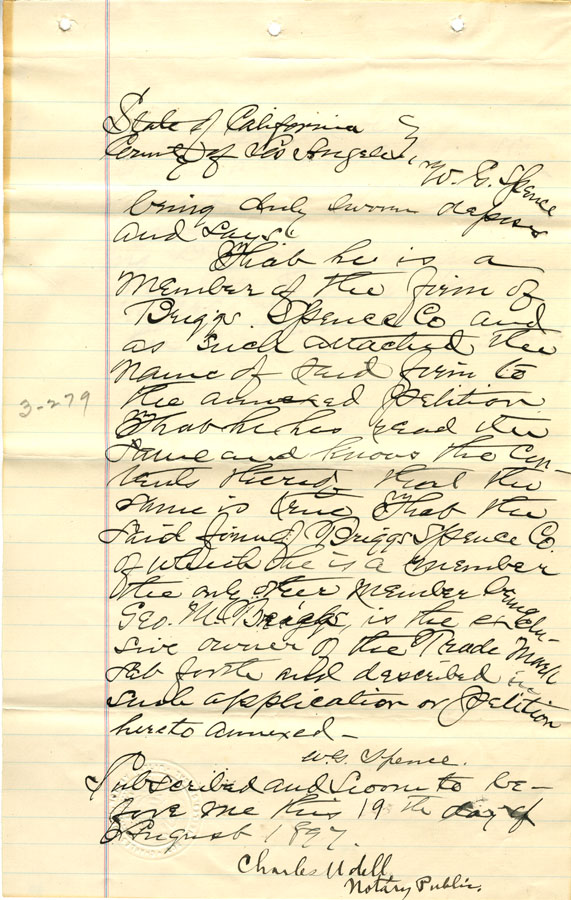 State of California }
County of Los Angeles,
W. G. Spence
being duly sworn deposes
and says
That he is a
member of the firm of
Briggs Spence Co and
as such attached the
name of said firm to
the annexed petition
That he has read the
same and knows the con-
tents thereof that the
same is true That the
said firm of Briggs Spence Co.
of which he is a member
the only other member being
Geo. M. Briggs, is the exclu-
sive owner of the Trade Mark
set forth and described in
such application or petition
hereto annexed -
W G. Spence.
Subscribed and Sworn to be-
fore me this 19th day of
August 1897.
Charles Udell
Notary Public.
3-279